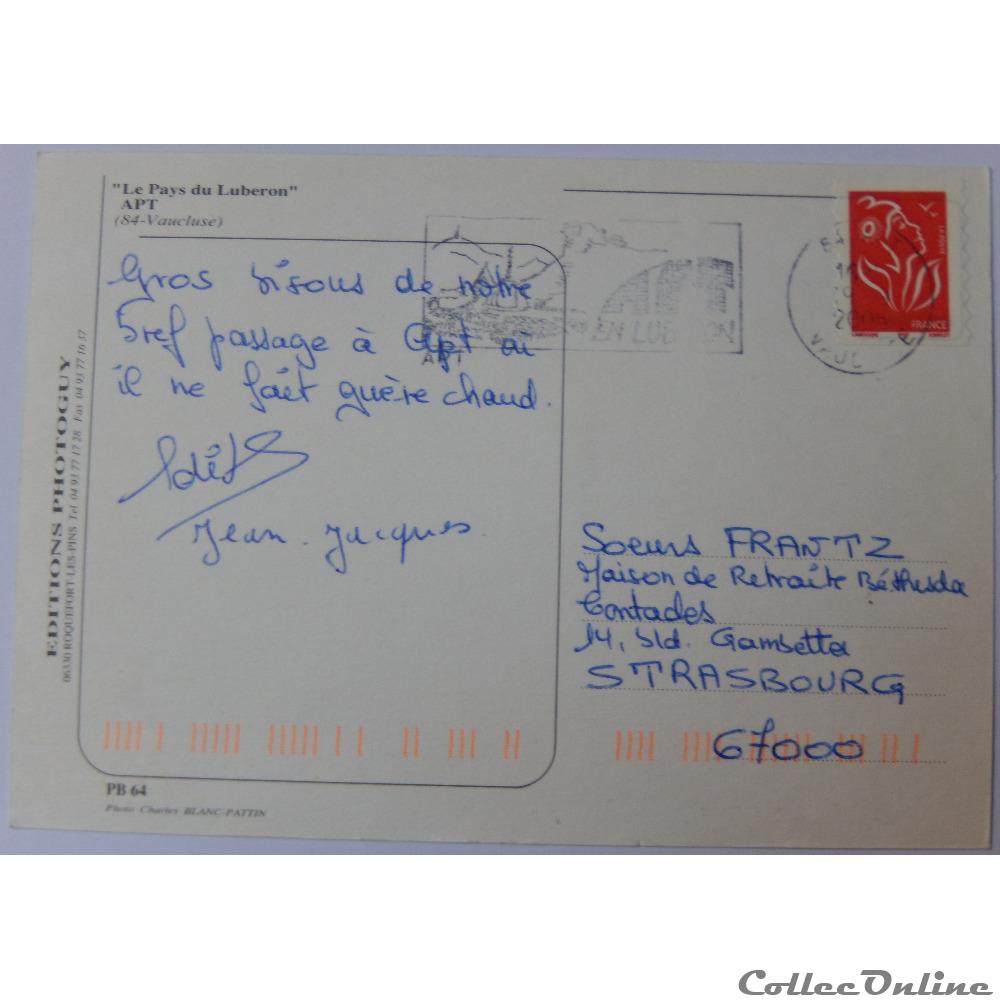 "Le Pays du Luberon"
APT
(84-Vaucluse)
Gros bisous de notre
bref passage à Apt où
il ne fait guère chaud.
Jean-Jacques
EDITIONS PHOTOGUY
06330 ROQUEFORT-LES-PINS Tel 04 93 77 17 28 Fax 04 93 77 16 37
APT
EN LUBERON
APT
FRANCE
Soeurs FRANTZ
Maison de Retraite Béthesda
Contades
14, bld. Gambetta
STRASBOURG
67000
PB 64
Photo Charles BLANC-PATTIN
CollecOnline